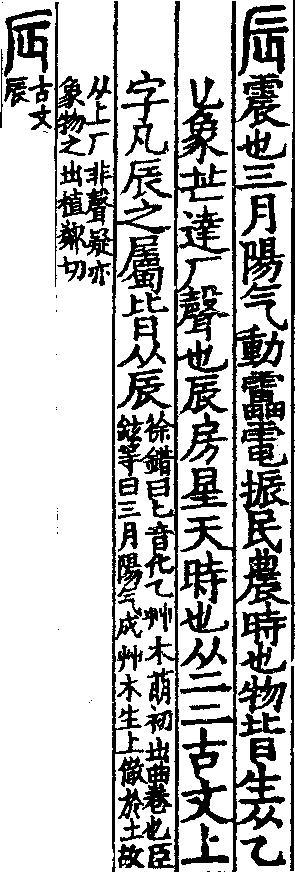 辰震也三月陽气動靁電振民農時也物皆生从乙
匕象芒達厂聲也辰房星天時也从二二古文上
字凡辰之屬皆从辰
徐鍇曰匕音化乙艸木萌初出曲卷也臣
鉉等曰三月陽气成艸木生上徹於土故
从上厂非聲疑亦
象物之出植鄰切
古文
辰